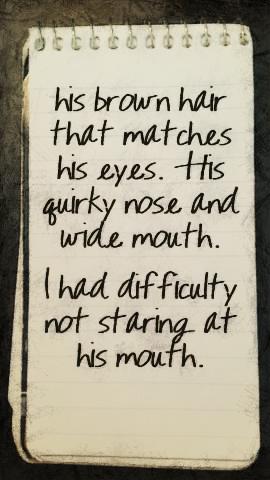 his brown hair
that matches
his eyes. His
quirky nose and
wide mouth.
I had difficulty
not staring at
his mouth.